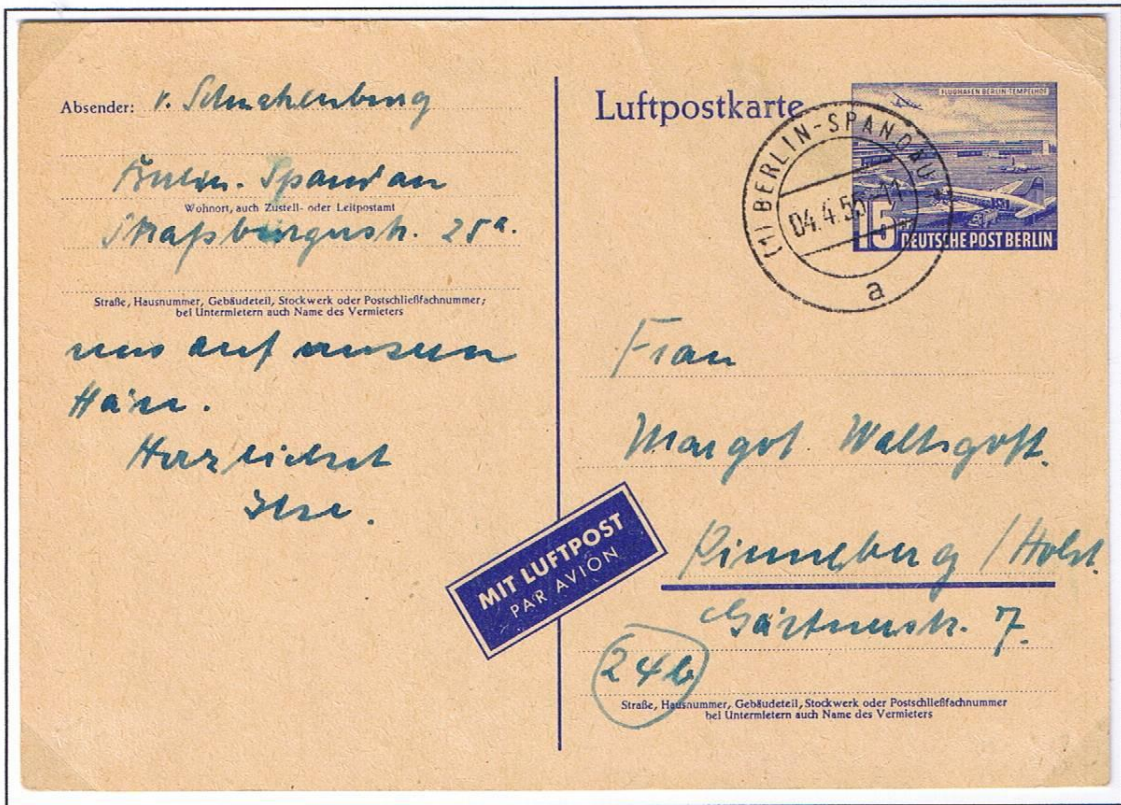 Absender: v. Schulenburg
Berlin-Spandau
Wohnort, auch Zustell- oder Leitpostamt
Straßburgerstr. 25a.
Straße, Hausnummer, Gebäudeteil, Stockwerk oder Postschließfachnummer;
bei Untermietern auch Name des Vermieters
uns auf unseren
Herzlichst
Ilse.
Luftpostkarte
FLUGHAFEN BERLIN-TEMPELHOF
15 DEUTSCHE POST BERLIN
(1) BERLIN-SPANDAU
04.4.55
a
Frau
Margot
Pinneberg / Holst.
Gärtnerstr. 7.
24b
Straße, Hausnummer, Gebäudeteil, Stockwerk oder Postschließfachnummer
bei Untermietern auch Name des Vermieters
MIT LUFTPOST
PAR AVION